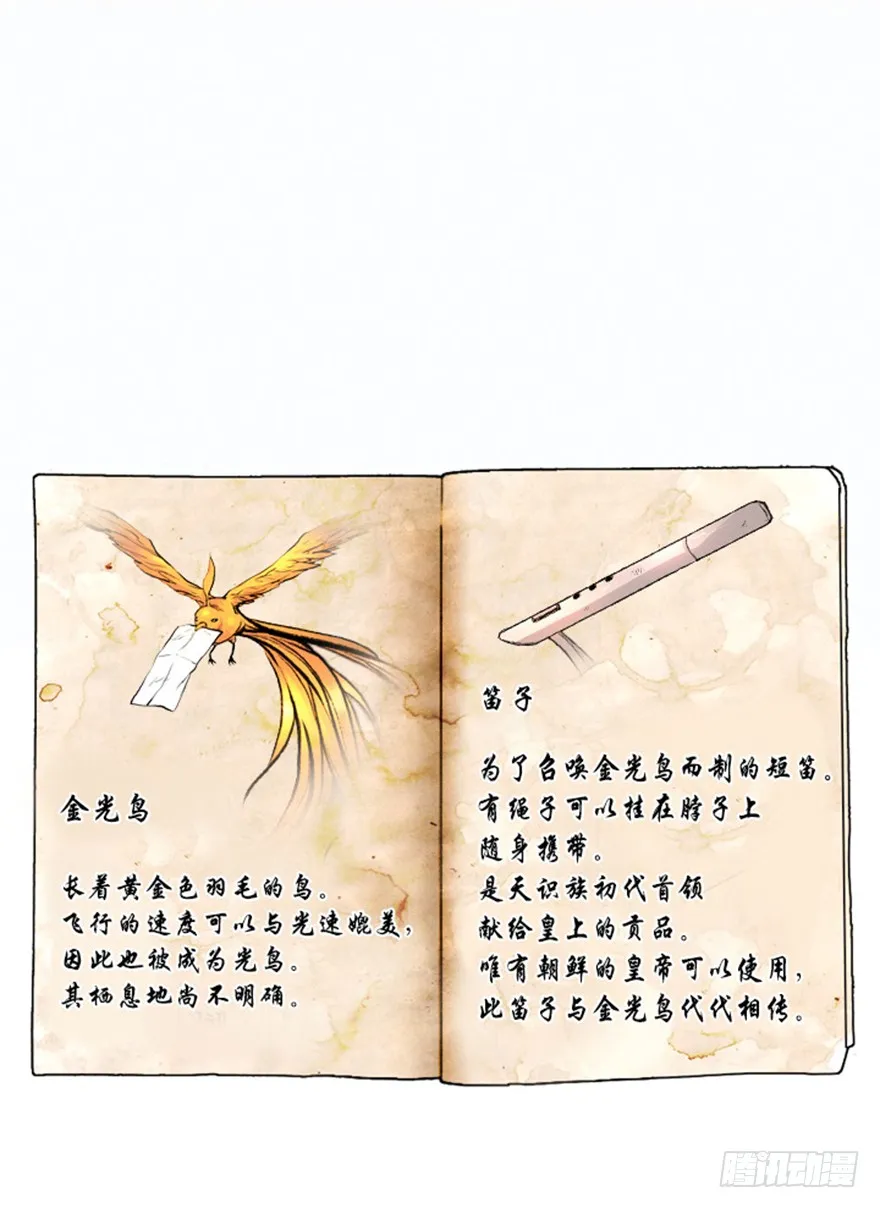 金光鸟
长着黄金色羽毛的鸟。
飞行的速度可以与光速媲美，
因此也被成为光鸟。
其栖息地尚不明确。
笛子
为了召唤金光鸟而制的短笛。
有绳子可以挂在脖子上
随身携带。
是天识族初代首领
献给皇上的贡品。
唯有朝鲜的皇帝可以使用，
此笛子与金光鸟代代相传。
腾讯动漫